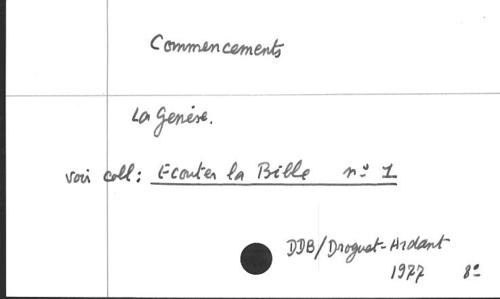 Commencements
La Genèse.
voir coll: Ecouter la Bible n° 1
DDB/Droguet-Ardant
1977 8°